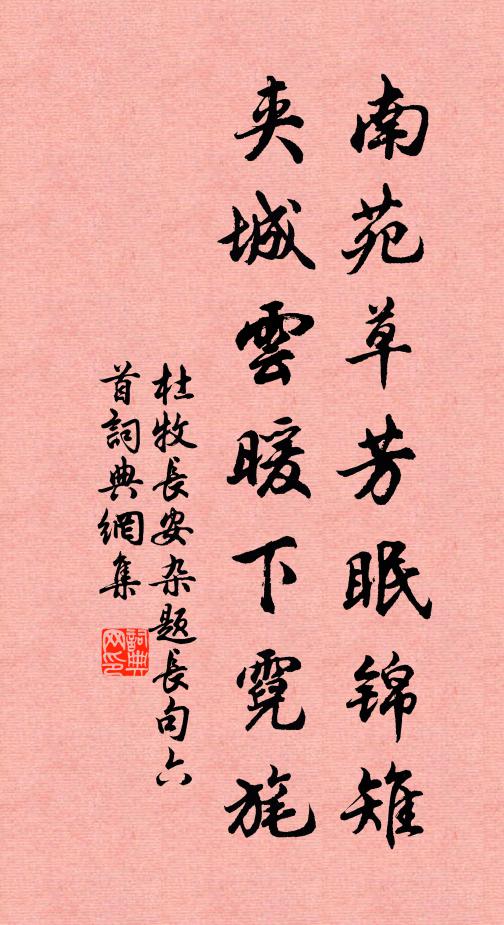 南苑草芳眠锦雉
夹城雲暖下霓旄
杜牧長安杂题長句六
首詞典網集
詞典
网印